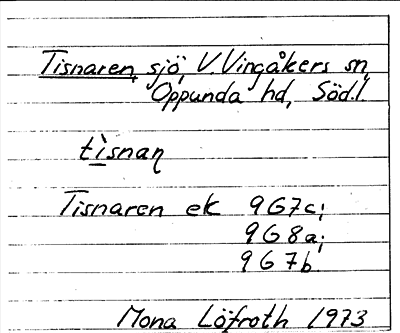 Tisnaren, sjö, V. Vingåkers sn,
Oppunda hd, Söd.l.
tìsnaņ
Tisnaren ek 9G7c;
9G8a;
9G7b
Mona Löfroth 1973